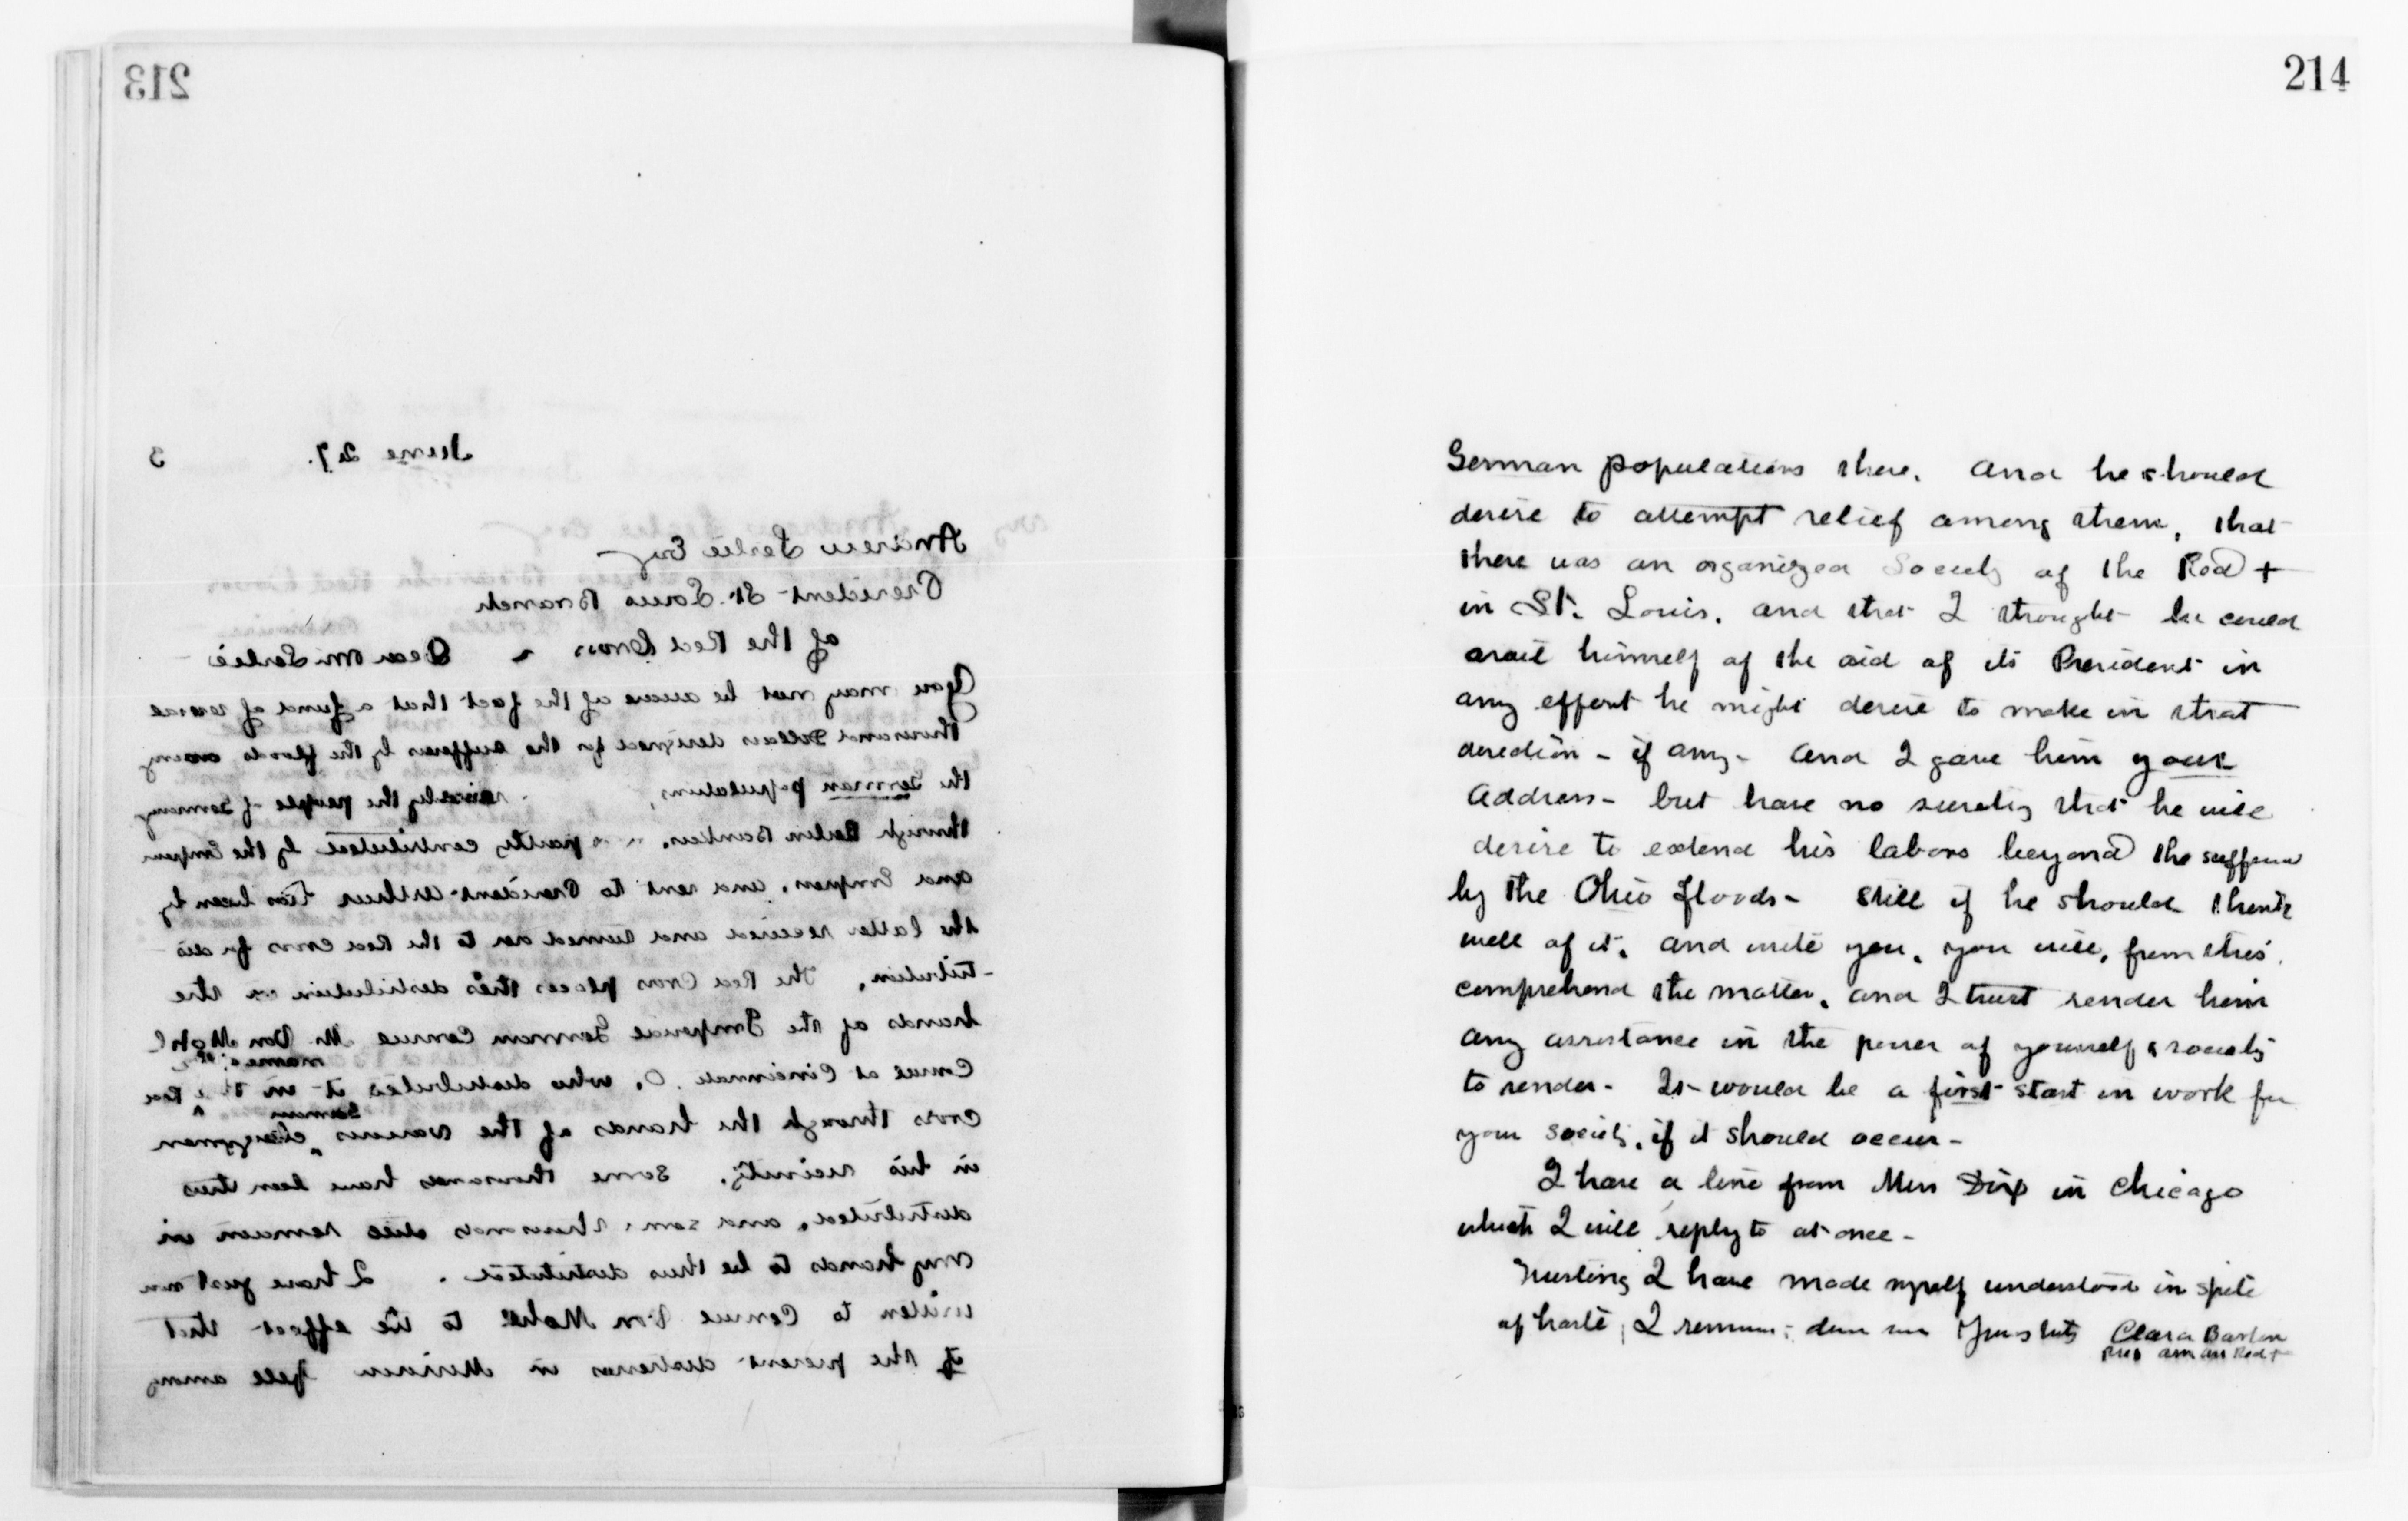 213
June 27. 3
Andrew Leslie Esq
President St. Louis Branch
of the Red Cross ~ Dear Mr Leslie
You may not be aware of the fact that a fund of several
thousand Dollars designed for the sufferers by the floods among
the German populations, raised by the people of Germany
through Berlin Bankers, partly contributed by the Emperor
and Empress, and sent to President Arthur has been by
the latter received and turned over to the Red Cross for dis
-tribution. The Red Cross places this distribution in the
hands of the Imperial German Consul Mr Von Mohl
Consul at Cincinnati O. who distributes it in the name of the Red
Cross through the hands of the various German clergymen
in his vicinity. Some thousands have been thus
distributed, and some thousands still remain in
my hands to be thus distributed. I have just
written to Consul Von Mohl to the effect that
if the present distress in Missouri fell among
214
German populations there, and he should
desire to attempt relief among them, that
there was an organized Society of the Red +
in St. Louis, and that I thought he could
avail himself of the aid of its President in
any effort he might desire to make in that
direction - if any - and I gave him your
address - but have no surety that he will
desire to extend his labors beyond the sufferers
by the Ohio floods - Still if he should think
well of it, and write you, you will, from this,
comprehend the matter, and I trust render him
any assistance in the power of yourself & society
to render - It would be a first start in work for
your society, if it should occur -
I have a line from Miss Dix in Chicago
which I will reply to at once -
Trusting I have made myself understood in spite
of haste, I remain, dear sir Yours truly Clara Barton
Pres Am Ass Red +